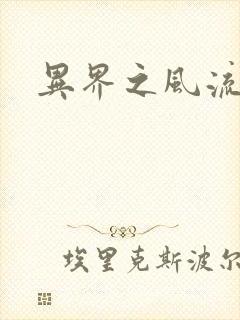 異界之風流
埃里克斯波尔